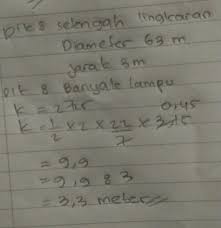 Dik : setengah lingkaran
Diameter 63 m
jarak 3m
Dit : Banyak lampu
k = 2πr
k = 1/2 x 2 x 22/7 x 3,15 0,45
= 9,9
= 9,9 : 3
= 3,3 meter